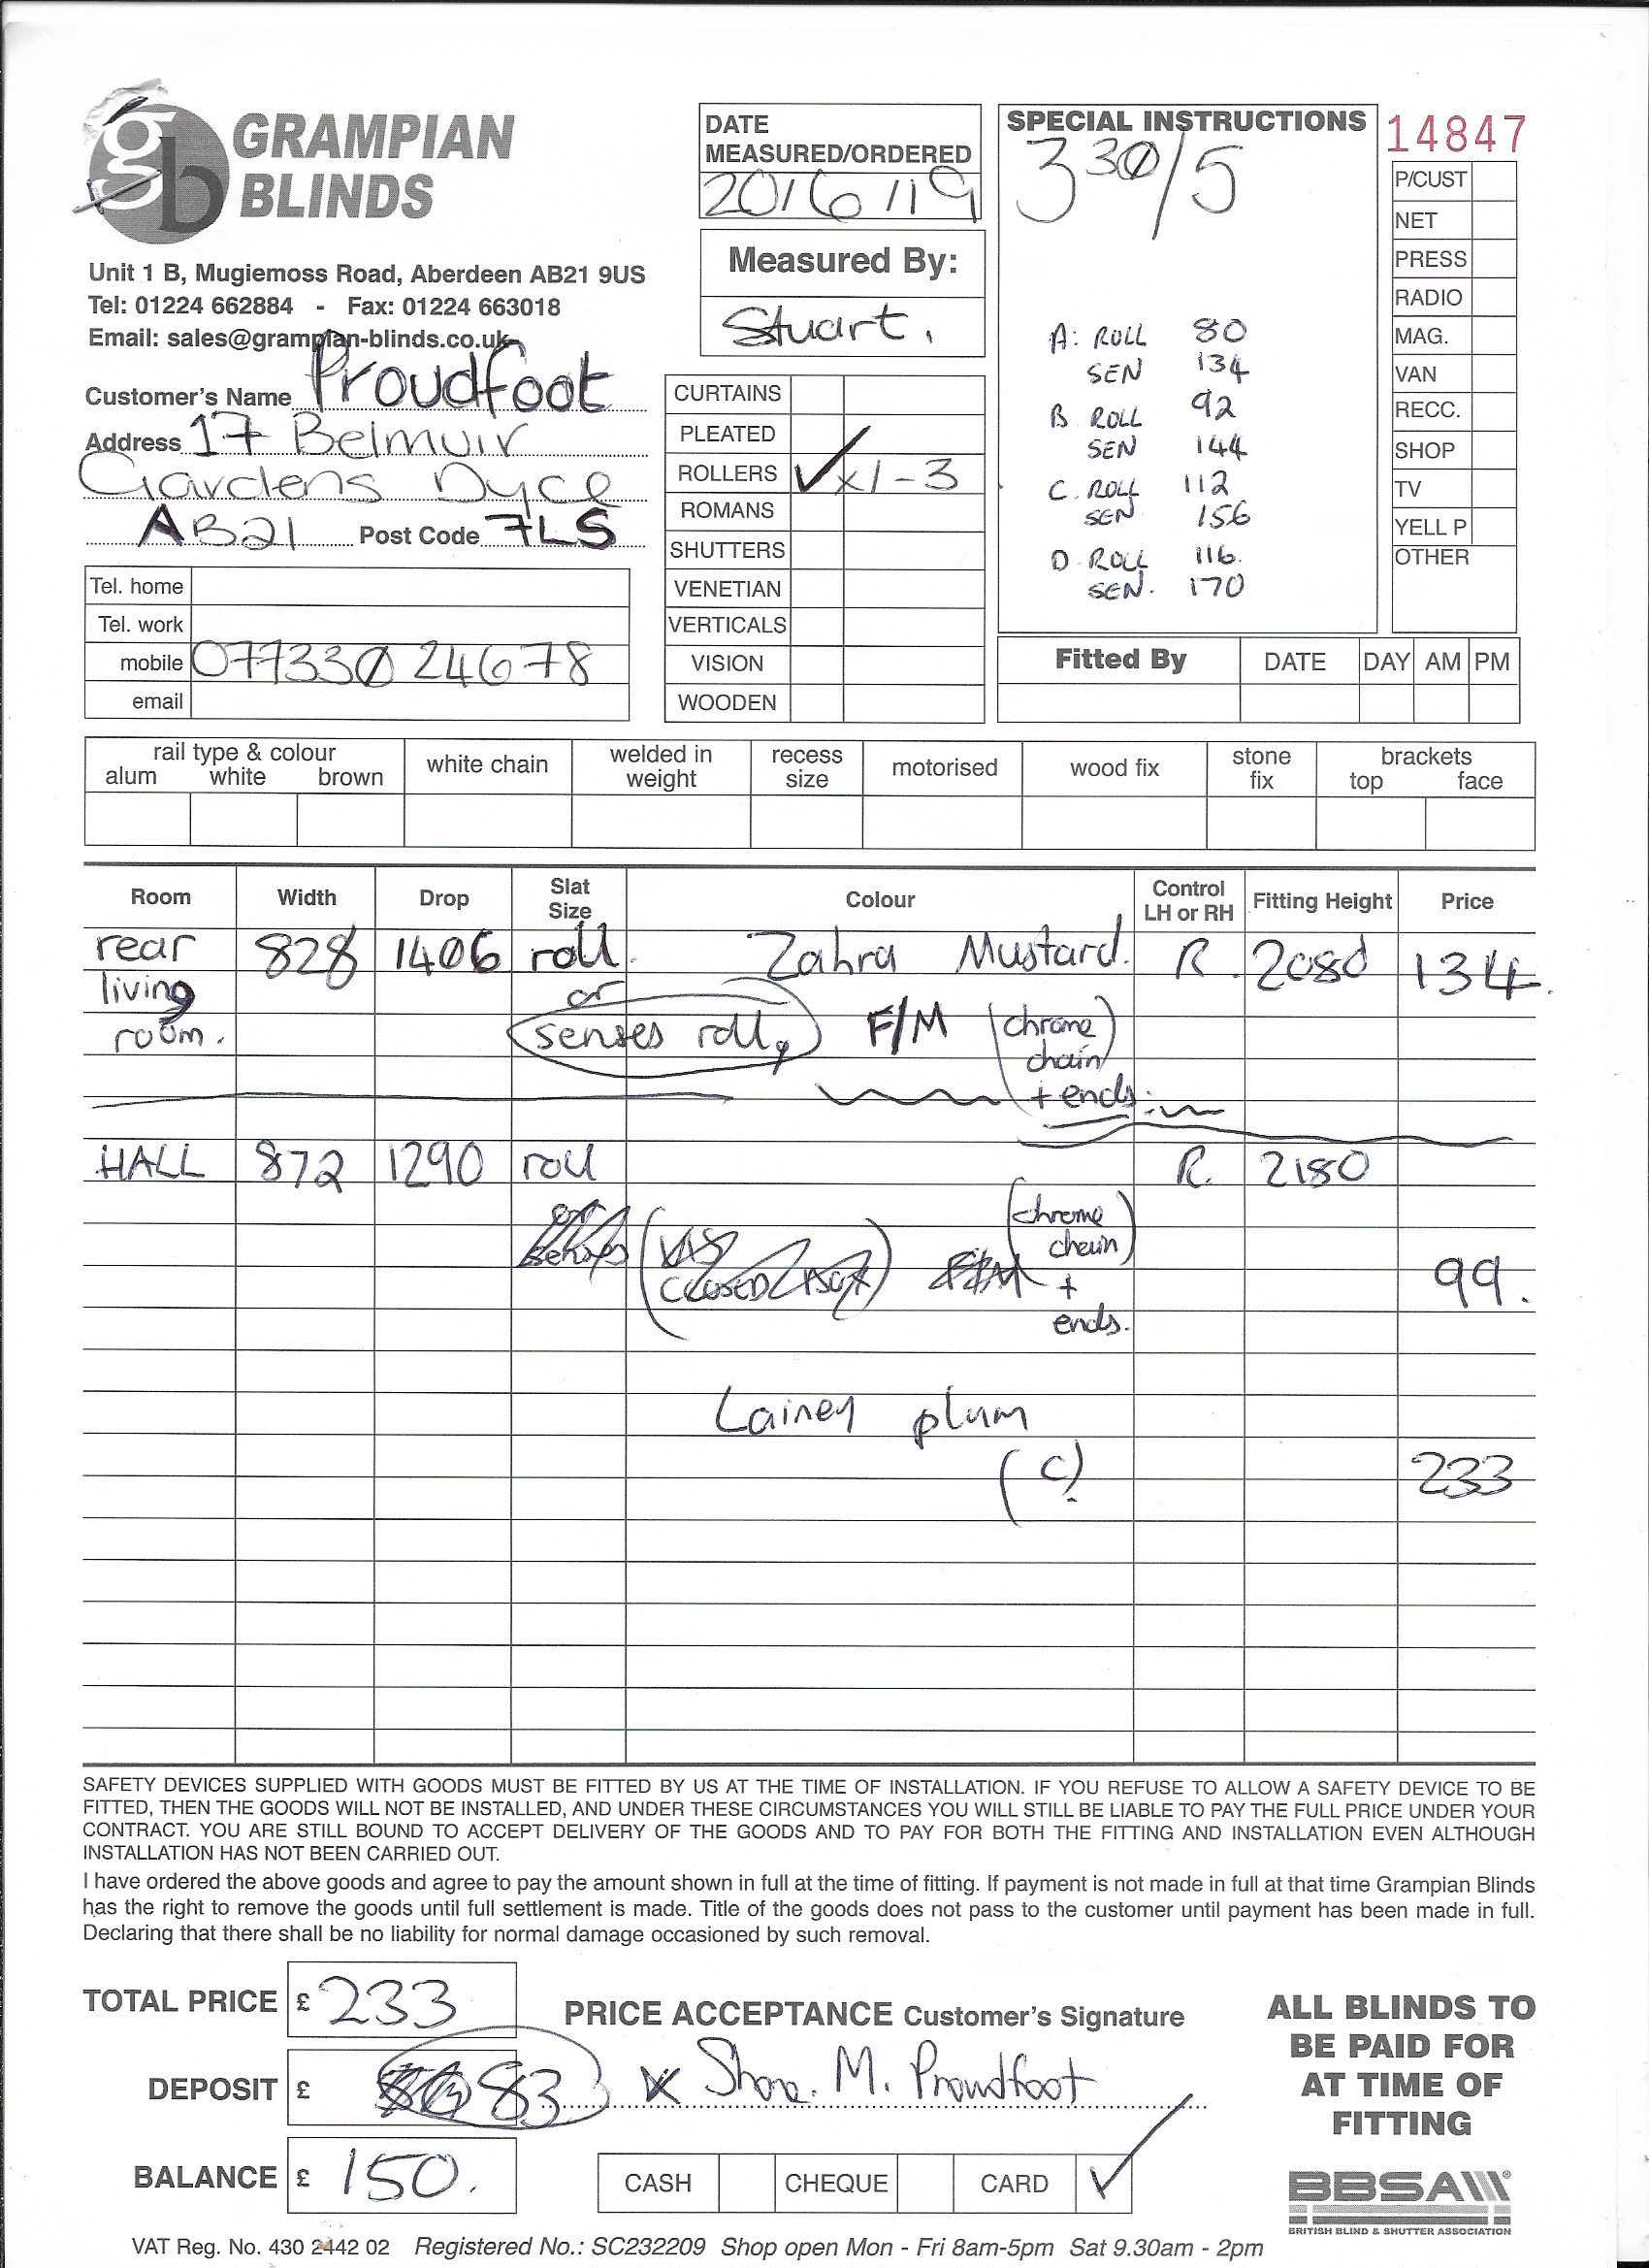 gb GRAMPIAN
BLINDS
Unit 1 B, Mugiemoss Road, Aberdeen AB21 9US
Tel: 01224 662884 - Fax: 01224 663018
Email: sales@grampian-blinds.co.uk
Customer's Name Proudfoot
Address 17 Belmuir
Gardens Dyce
AB21 Post Code 7LS
Tel. home
Tel. work
mobile 07733024678
email
DATE
MEASURED/ORDERED
20/6/19
Measured By:
Stuart.
CURTAINS
PLEATED
ROLLERS ✓ x1-3
ROMANS
SHUTTERS
VENETIAN
VERTICALS
VISION
WOODEN
SPECIAL INSTRUCTIONS
330/5
A: ROLL 80
SEN 134
B ROLL 92
SEN 144
C. ROLL 112
SEN 156
D. ROLL 116.
SEN. 170
14847
P/CUST
NET
PRESS
RADIO
MAG.
VAN
RECC.
SHOP
TV
YELL P
OTHER
Fitted By DATE DAY AM PM
rail type & colour
alum white brown
white chain
welded in
weight
recess
size
motorised
wood fix
stone
fix
brackets
top face
Room Width Drop Slat Size Colour Control LH or RH Fitting Height Price
rear 828 1406 roll. Zahra Mustard. R. 2080 134.
living or
room. senses roll, F/M (chrome
chain)
+ ends.
HALL 872 1290 roll R. 2180
or (chrome
senses chain)
CLOSED F/M + 99.
ends.
Lainey plum
(C). 233
SAFETY DEVICES SUPPLIED WITH GOODS MUST BE FITTED BY US AT THE TIME OF INSTALLATION. IF YOU REFUSE TO ALLOW A SAFETY DEVICE TO BE
FITTED, THEN THE GOODS WILL NOT BE INSTALLED, AND UNDER THESE CIRCUMSTANCES YOU WILL STILL BE LIABLE TO PAY THE FULL PRICE UNDER YOUR
CONTRACT. YOU ARE STILL BOUND TO ACCEPT DELIVERY OF THE GOODS AND TO PAY FOR BOTH THE FITTING AND INSTALLATION EVEN ALTHOUGH
INSTALLATION HAS NOT BEEN CARRIED OUT.
I have ordered the above goods and agree to pay the amount shown in full at the time of fitting. If payment is not made in full at that time Grampian Blinds
has the right to remove the goods until full settlement is made. Title of the goods does not pass to the customer until payment has been made in full.
Declaring that there shall be no liability for normal damage occasioned by such removal.
TOTAL PRICE £ 233
DEPOSIT £ 83
BALANCE £ 150.
PRICE ACCEPTANCE Customer's Signature
x Shona. M. Proudfoot
CASH CHEQUE CARD ✓
ALL BLINDS TO
BE PAID FOR
AT TIME OF
FITTING
BBSA
BRITISH BLIND & SHUTTER ASSOCIATION
VAT Reg. No. 430 2442 02 Registered No.: SC232209 Shop open Mon - Fri 8am-5pm Sat 9.30am - 2pm